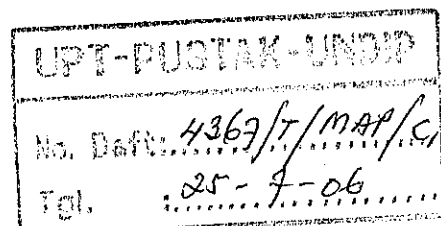 UPT-PUSTAK-UNDIP
No. Daft: 4367/T/MAP/C1
Tgl. : 25-7-06